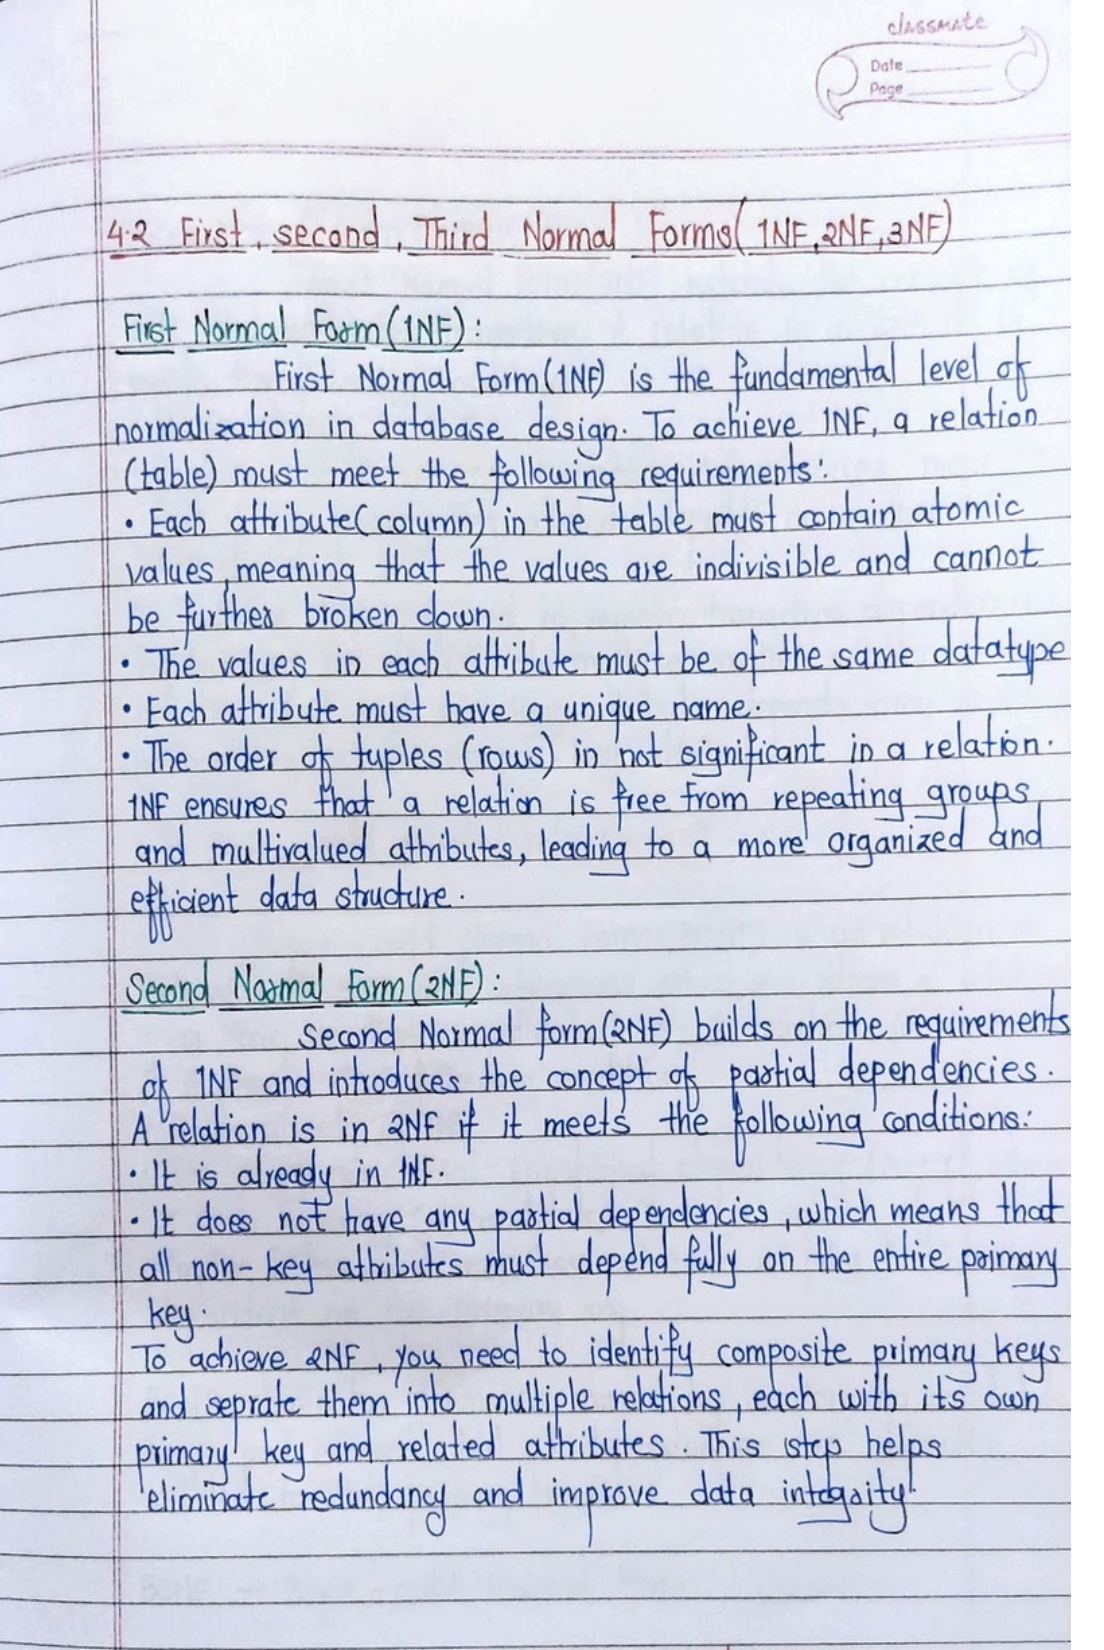 classmate
Date
Page
4.2 First, second, Third Normal Forms(1NF,2NF,3NF)
First Normal Form(1NF):
First Normal Form(1NF) is the fundamental level of
normalization in database design. To achieve 1NF, a relation
(table) must meet the following requirements:
• Each attribute(column) in the table must contain atomic
values, meaning that the values are indivisible and cannot
be further broken down.
• The values in each attribute must be of the same datatype
• Each attribute must have a unique name.
• The order of tuples (rows) in not significant in a relation.
1NF ensures that a relation is free from repeating groups
and multivalued attributes, leading to a more organized and
efficient data structure.
Second Normal Form(2NF):
Second Normal form(2NF) builds on the requirements
of 1NF and introduces the concept of partial dependencies.
A relation is in 2NF if it meets the following conditions:
• It is already in 1NF.
• It does not have any partial dependencies, which means that
all non-key attributes must depend fully on the entire primary
key.
To achieve 2NF, you need to identify composite primary keys
and seprate them into multiple relations, each with its own
primary key and related attributes. This step helps
eliminate redundancy and improve data integrity.